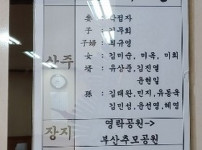 妻
子 김두희
子婦 최규영
女 김미순, 미옥, 미희
상주
婿 유상준, 김진영
윤현일
孫 김태완, 민지, 유동욱
김민성, 윤선영, 혜영
장지
영락공원->
부산추모공원